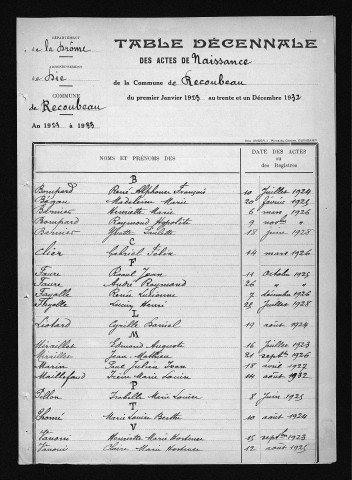 DÉPARTEMENT
de la Drôme
ARRONDISSEMENT
de Die
COMMUNE
de Recoubeau
An 1923 à 1933
TABLE DÉCENNALE
DES ACTES DE Naissance
de la Commune de Recoubeau
du premier Janvier 1923 au trente et un Décembre 1932
NOMS ET PRÉNOMS DES
DATE DES ACTES
ou des
Registres
B
Bompard René Alphonse François 10 Juillet 1924
Bégou Madeleine Marie 20 février 1925
Bernier Henriette Marie 6 mars 1926
Bompard Raymond Hypolite 9 " "
Bernier Yvette Paulette 18 juin 1928
C
Chier Gabriel Félix 14 mars 1926
F
Faure Raoul Jean 11 Octobre 1925
Faure André Raymond 26 " "
Fayolle Renée Lucienne 7 décembre 1926
Fayolle Lucien Henri 29 Juillet 1928
L
Liotard Cyrille Daniel 19 août 1924
M
Miraillet Edmond Auguste 16 Juillet 1923
Miraillet Jean Mathieu 21 septbre 1926
Marin Paul Julien Ivan 18 août 1927
Maillefaud Irène Marie Louise 14 août 1932
P
Pellon Isabelle Marie Louise 8 Juin 1925
T
Thomé Marie Louise Berthe 10 août 1924
V
Vanoni Henriette Marie Hortense 15 septbre 1923
Vanoni Claire Marie Hortense 12 août 1925